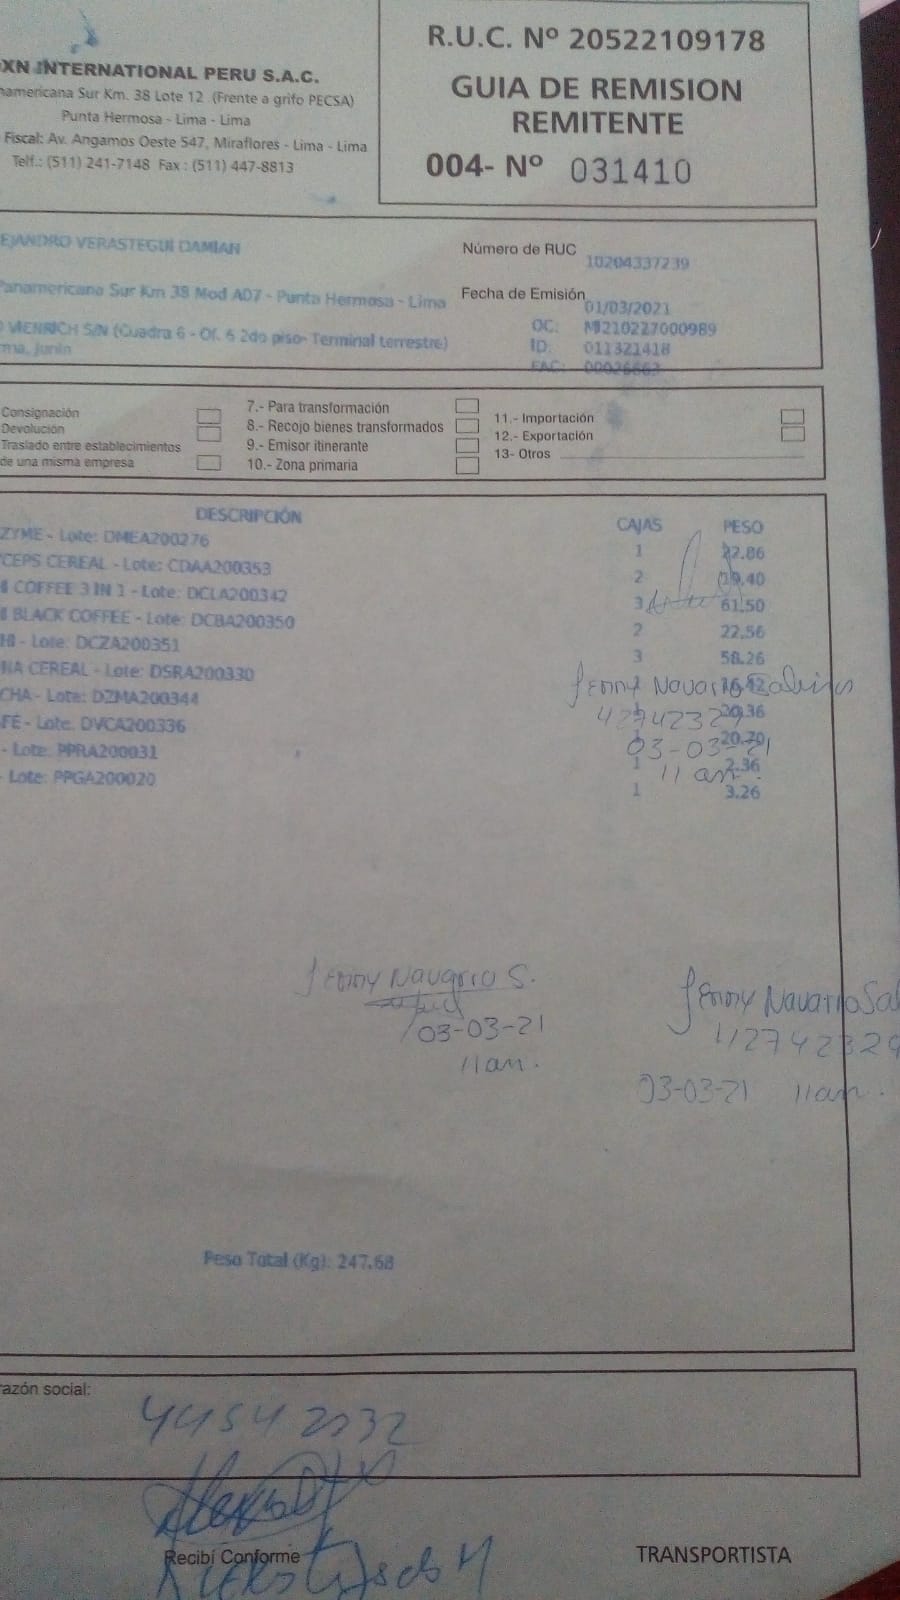 XN INTERNATIONAL PERU S.A.C.
namericana Sur Km. 38 Lote 12 (Frente a grifo PECSA)
Punta Hermosa - Lima - Lima
Fiscal: Av. Angamos Oeste 547, Miraflores - Lima - Lima
Telf.: (511) 241-7148 Fax : (511) 447-8813
R.U.C. Nº 20522109178
GUIA DE REMISION
REMITENTE
004- Nº 031410
EJANDRO VERASTEGUI DAMIAN
Panamericana Sur Km 38 Mod A07 - Punta Hermosa - Lima
VIENRICH S/N (Cuadra 6 - Of. 6 2do piso- Terminal terrestre)
rma, Junin
Número de RUC 10204337239
Fecha de Emisión 01/03/2021
OC: MI210227000989
ID: 011321418
FAC: 00026663
Consignación
Devolución
Traslado entre establecimientos
de una misma empresa
7.- Para transformación
8.- Recojo bienes transformados
9.- Emisor itinerante
10.- Zona primaria
11.- Importación
12.- Exportación
13- Otros
DESCRIPCIÓN CAJAS PESO
ZYME - Lote: DMEA200276 1 22.86
CEPS CEREAL - Lote: CDAA200353 2 19.40
COFFEE 3 IN 1 - Lote: DCLA200342 3 61.50
BLACK COFFEE - Lote: DCBA200350 2 22.56
HI - Lote: DCZA200351 3 58.26
NA CEREAL - Lote: DSRA200330 16.42
CHA - Lote: DZMA200344 1 20.36
FÉ - Lote: DVCA200336 1 20.70
- Lote: PPRA200031 1 2.36
Lote: PPGA200020 1 3.26
Jenny Navarro
42742329
03-03-21
11 am.
Jenny Navarro S.
03-03-21
11am.
Jenny Navarro Sal
42742329
03-03-21 11am.
Peso Total (Kg): 247.68
azón social:
Recibí Conforme
TRANSPORTISTA